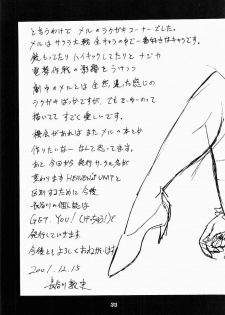 と言うわけで メルのラクガキコーナーでした。
メルはサクラ大戦 全キャラの中で一番好きなキャラです。
飲もってたり ハイキックしてたりと ナジャ
電撃作戦の影響をうけつつ
劇中のメルとは 全然違った感じの
ラクガキばっかですが、でもモーかーわって
描いてて すごく楽しいです。
機会があれば また メルの本とか
作りたいなーなんて思ってます。
あと今回から 発行サークル名が
変わります HEAVEN'S UNITと
区別するために 今後
長谷川の個人誌は
GET YOU!(げっちゅう!)で
発行していきます
今後ともよろしくおねがいします
2001.12.15
長谷川
33